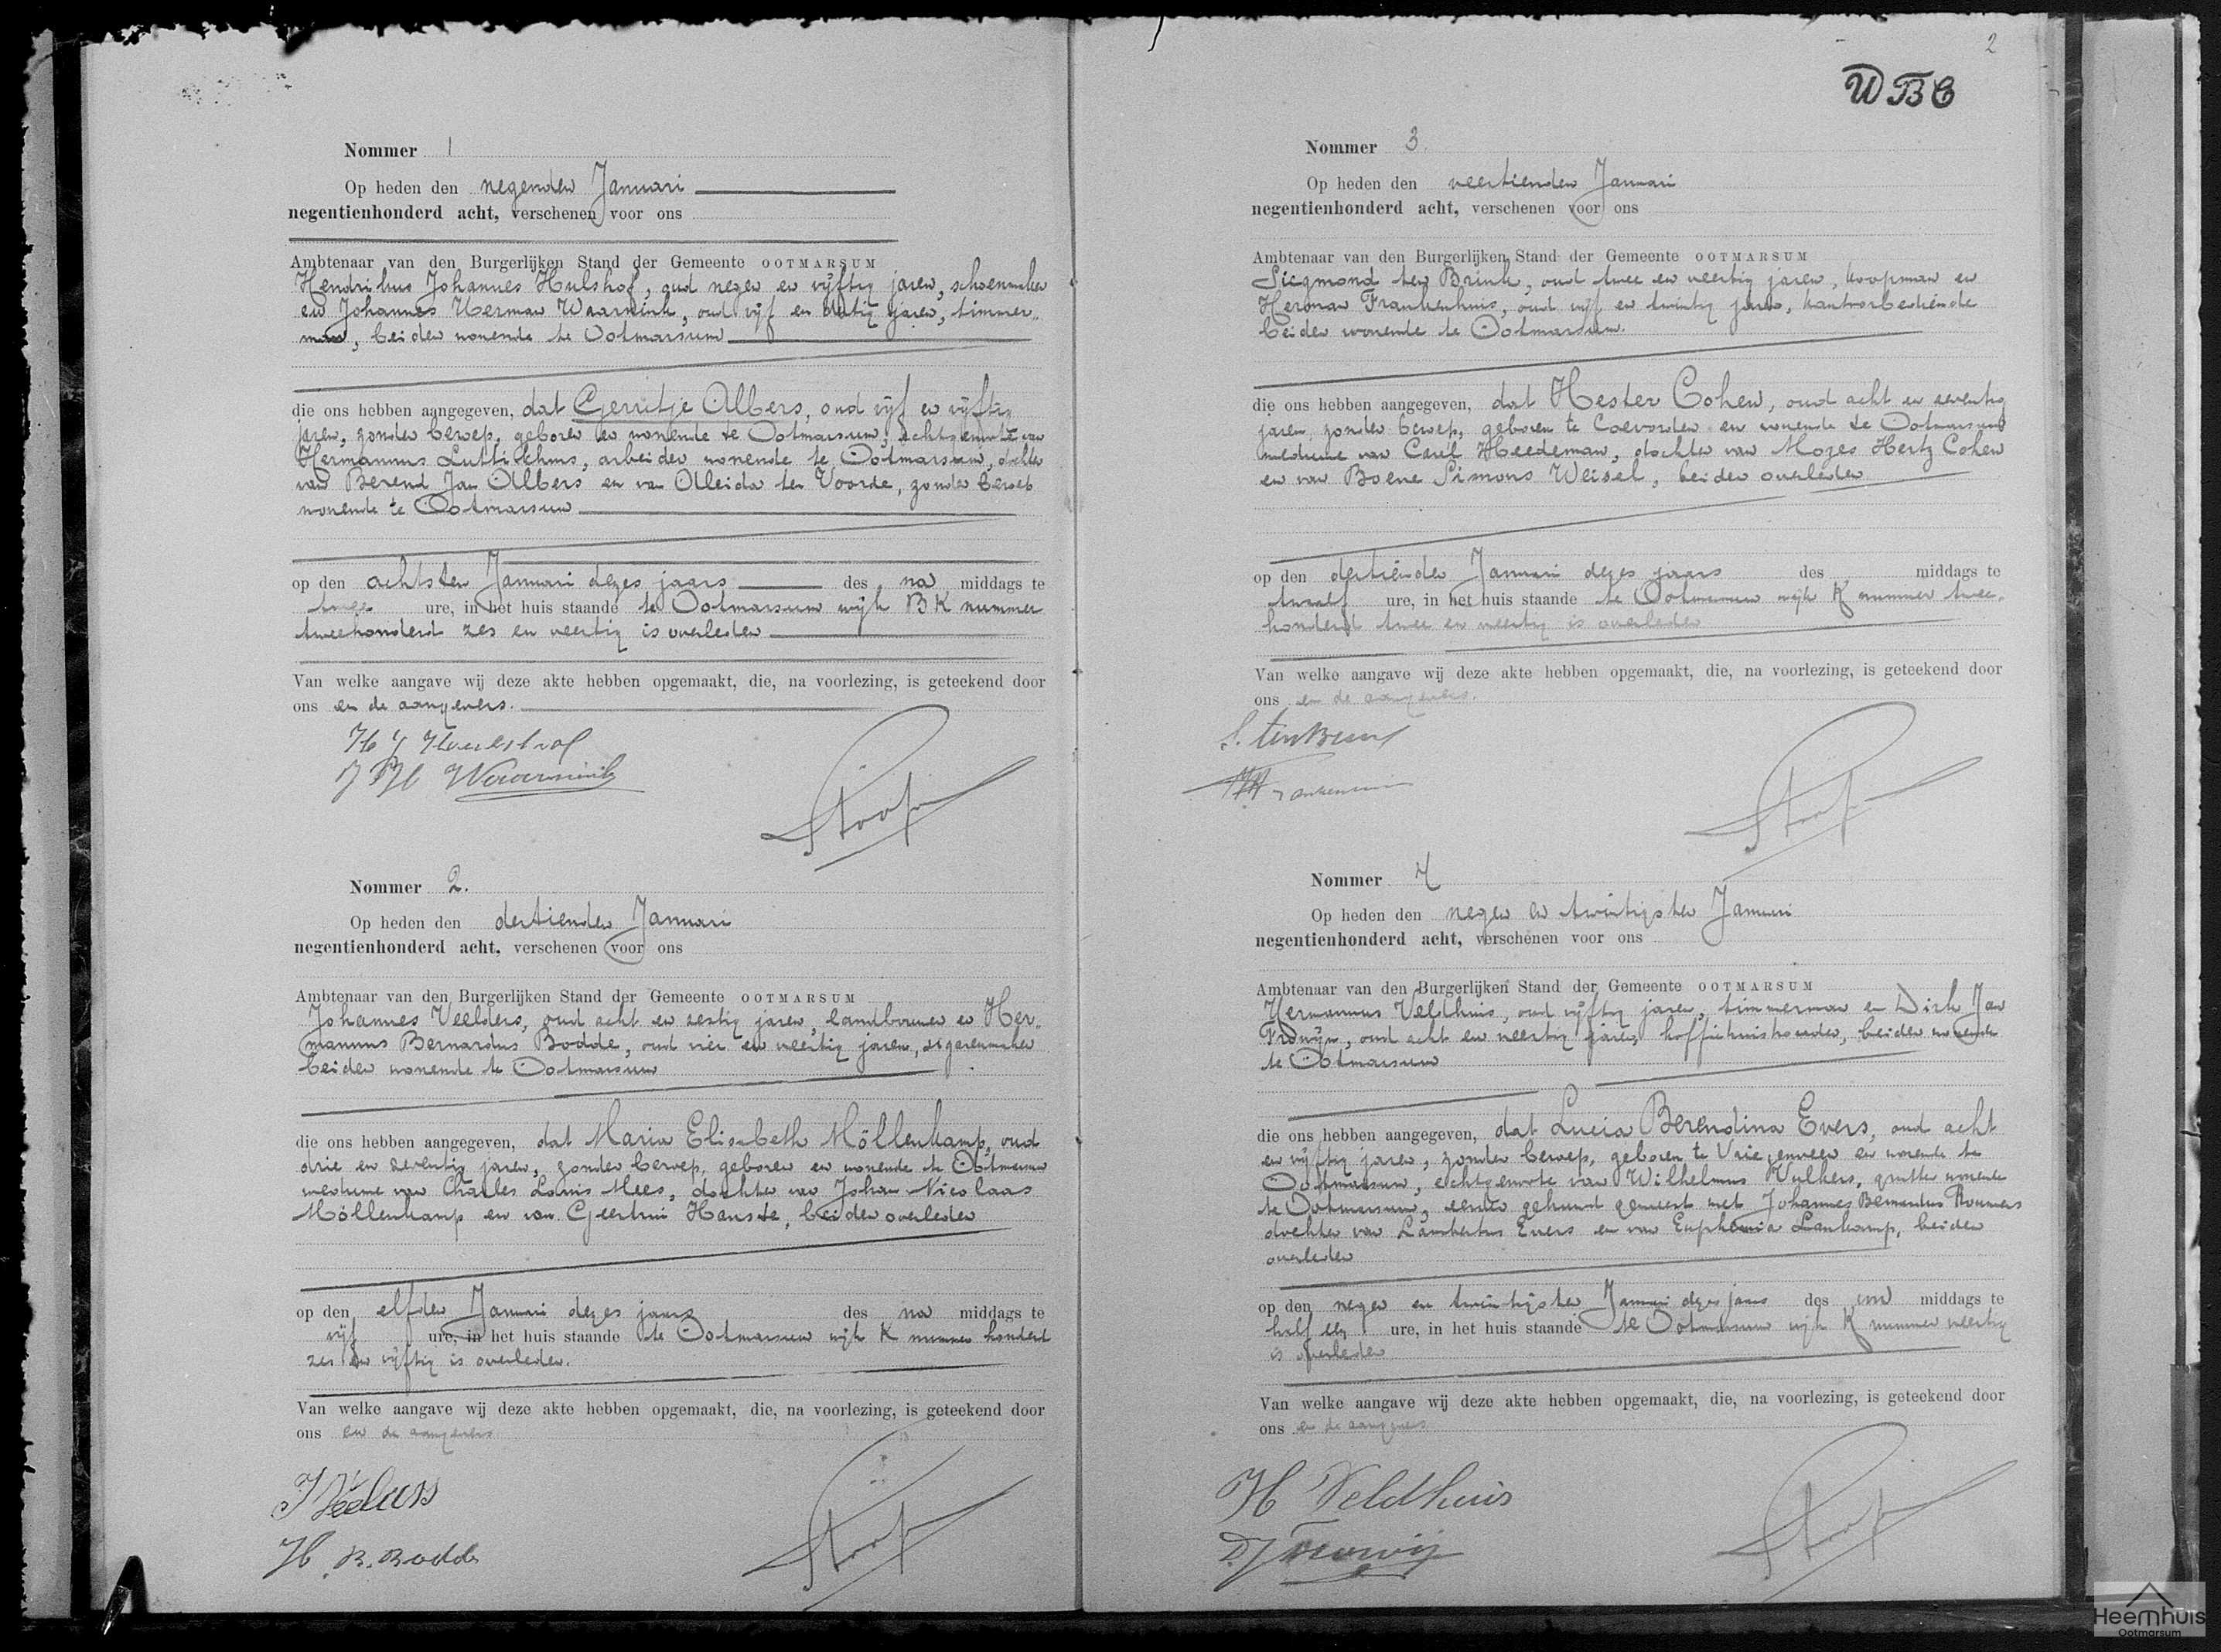 Nommer 1
Op heden den negenden Januari
negentienhonderd acht, verschenen voor ons
Ambtenaar van den Burgerlijken Stand der Gemeente OOTMARSUM
Hendrikus Johannes Hulshof, oud negen en vijftig jaren, schoenmaker
en Johannes Herman Waarnink, oud vijf en dertig jaren, timmer„
man, beiden wonende te Ootmarsum
die ons hebben aangegeven, dat Gerritje Albers, oud vijf en vijftig
jaren, zonder beroep, geboren en wonende te Ootmarsum, echtgenoote van
Hermannus Luttikhuis, arbeider wonende te Ootmarsum, dochter
van Berend Jan Albers en van Aleida ten Voorde, zonder beroep
wonende te Ootmarsum
op den achtsten Januari dezes jaars des na middags te
twee ure, in het huis staande te Ootmarsum wijk BK nummer
tweehonderd zes en veertig is overleden
Van welke aangave wij deze akte hebben opgemaakt, die, na voorlezing, is geteekend door
ons en de aangevers.
H J Hulshof
J H Waarnink
Stoop
Nommer 2.
Op heden den dertienden Januari
negentienhonderd acht, verschenen voor ons
Ambtenaar van den Burgerlijken Stand der Gemeente OOTMARSUM
Johannes Veelders, oud acht en zestig jaren, landbouwer en Her„
mannus Bernardus Bodde, oud vier en veertig jaren, sigarenmaker
beiden wonende te Ootmarsum
die ons hebben aangegeven, dat Maria Elisabeth Möllenkamp, oud
drie en zeventig jaren, zonder beroep, geboren en wonende te Ootmarsum
weduwe van Charles Louis Mees, dochter van Johan Nicolaas
Möllenkamp en van Geertrui Hanste, beiden overleden
op den elfden Januari dezes jaars des na middags te
vijf ure, in het huis staande te Ootmarsum wijk K nummer honderd
zes en vijftig is overleden.
Van welke aangave wij deze akte hebben opgemaakt, die, na voorlezing, is geteekend door
ons en de aangevers
J Veelders
H. B. Bodde
Stoop
2
WBC
Nommer 3.
Op heden den veertienden Januari
negentienhonderd acht, verschenen voor ons
Ambtenaar van den Burgerlijken Stand der Gemeente OOTMARSUM
Siegmond ten Brink, oud twee en veertig jaren, koopman en
Herman Frankenhuis, oud vijf en twintig jaren, kantoorbediende
beiden wonende te Ootmarsum.
die ons hebben aangegeven, dat Hester Cohen, oud acht en zeventig
jaren, zonder beroep, geboren te Coevorden en wonende te Ootmarsum
weduwe van Carel Heedeman, dochter van Mozes Hertz Cohen
en van Boene Simons Weisel, beiden overleden
op den dertienden Januari dezes jaars des middags te
twaalf ure, in het huis staande te Ootmarsum wijk K nummer twee„
honderd twee en veertig is overleden
Van welke aangave wij deze akte hebben opgemaakt, die, na voorlezing, is geteekend door
ons en de aangevers.
S. ten Brink
Stoop
Nommer 4
Op heden den negen en twintigsten Januari
negentienhonderd acht, verschenen voor ons
Ambtenaar van den Burgerlijken Stand der Gemeente OOTMARSUM
Hermannus Veldhuis, oud vijftig jaren, timmerman en Dirk Jan
oud acht en veertig jaren, koffiehuishouder, beiden wonende
te Ootmarsum
die ons hebben aangegeven, dat Lucia Berendina Evers, oud acht
en vijftig jaren, zonder beroep, geboren te Vriezenveen en wonende te
Ootmarsum, echtgenoote van Wilhelmus Kulkers, wonende
te Ootmarsum, eerder gehuwd geweest met Johannes Bernardus
dochter van Lambertus Evers en van Euphemia Lankamp, beiden
overleden
op den negen en twintigsten Januari dezes jaars des middags te
half een ure, in het huis staande te Ootmarsum wijk K nummer veertig
is overleden
Van welke aangave wij deze akte hebben opgemaakt, die, na voorlezing, is geteekend door
ons en de aangevers
H Veldhuis
Stoop
Heemhuis
Ootmarsum